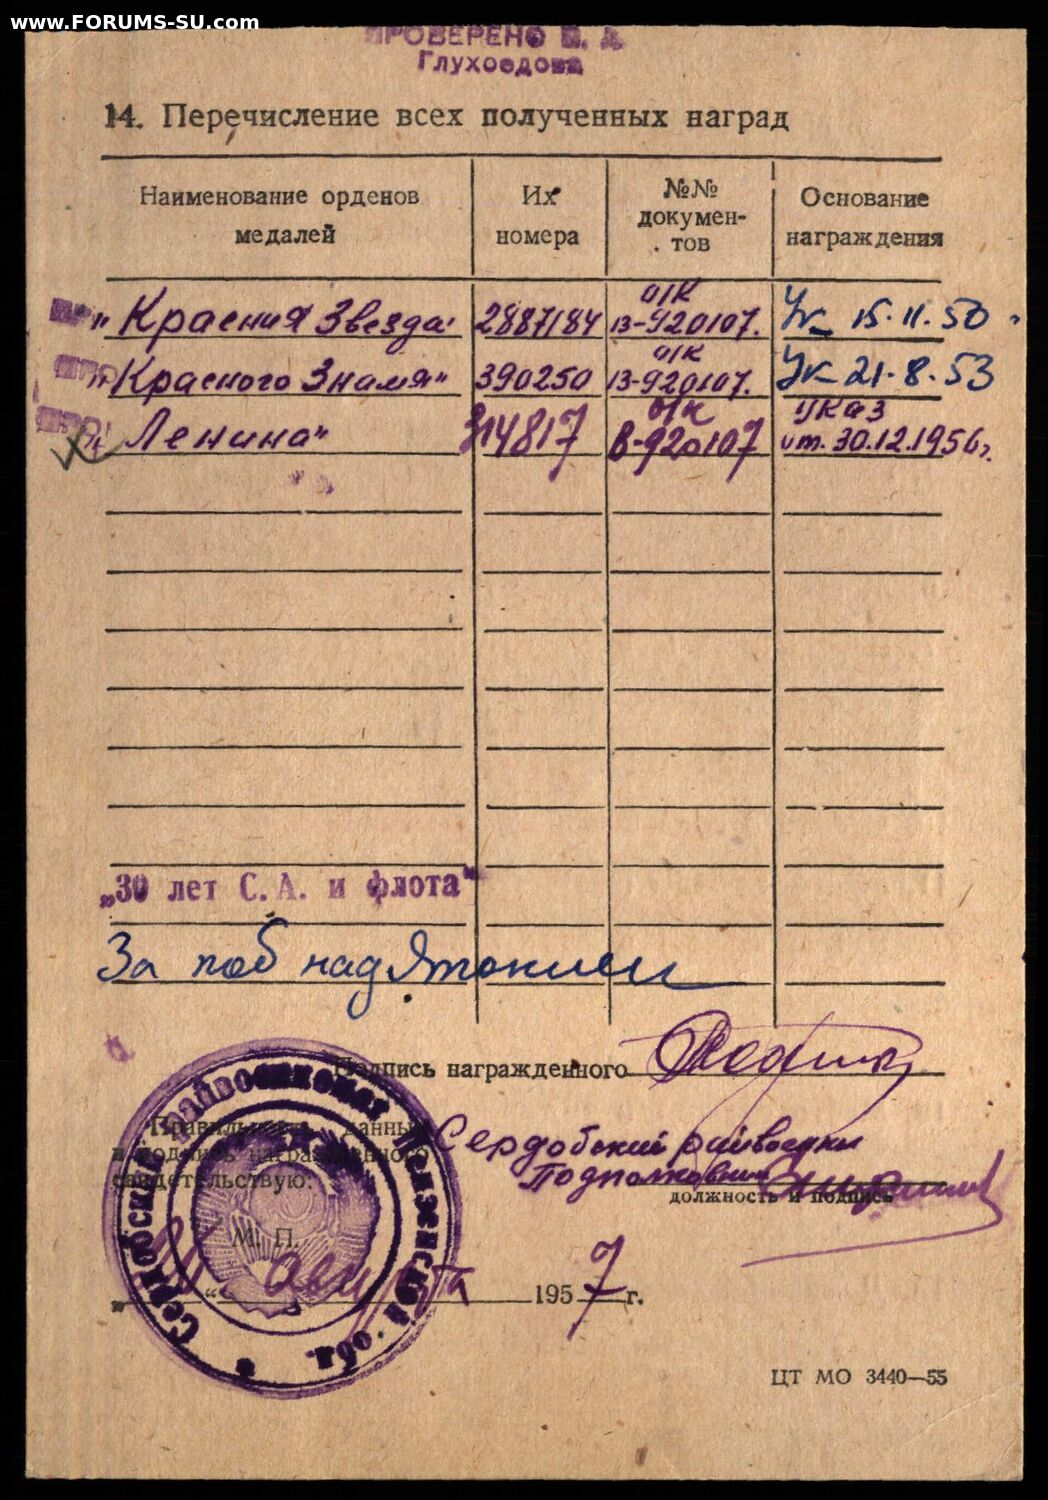 www.FORUMS-SU.com
ПРОВЕРЕНО
Глухоедова
14. Перечисление всех полученных наград
Наименование орденов медалей
Их номера
№№ докумен-
тов
Основание награждения
„Красная Звезда" 2887184 о/к 13-920107. Ук 15.11.50
„Красного Знамя" 390250 о/к 13-920107. Ук 21.8.53
„Ленина" 314817 о/к В-920107 указ от. 30.12.1956г.
„30 лет С. А. и флота"
За поб над Японией
Подпись награжденного
Правильность данных
и подпись награжденного
свидетельствую:
Сердобский райвоенком
Подполковник
должность и подпись
М. П.
„ “ август 1957 г.
Сердобский райвоенкомат Пензенской обл.
ЦТ МО 3440—55